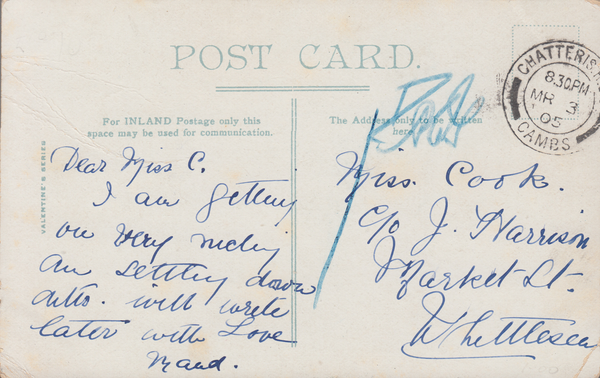 POST CARD.
For INLAND Postage only this
space may be used for communication.
The Address only to be written
here.
VALENTINE'S SERIES
CHATTERIS
8.30PM
MR 3
05
CAMBS
Dear Miss C.
I am getting
on very nicely
am settling down
ditto. will write
later with Love
Maud.
Miss. Cook.
c/o J. Harrison
Market St.
Whittlesea